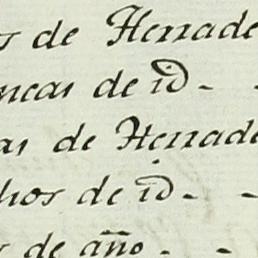 s de Herrade
ncas de id. -
as de Herrade
hos de id. -
s de año. -